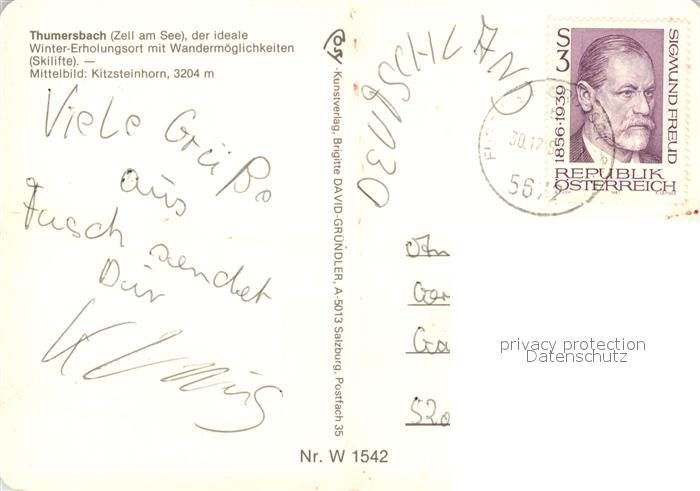 Thumersbach (Zell am See), der ideale
Winter-Erholungsort mit Wandermöglichkeiten
(Skilifte). —
Mittelbild: Kitzsteinhorn, 3204 m
Viele Grüße
aus
Fusch sendet
Dir
Cosy -Kunstverlag, Brigitte DAVID-GRÜNDLER, A-5013 Salzburg, Postfach 35
DEUTSCHLAND
S 3
1856-1939
SIGMUND FREUD
REPUBLIK
ÖSTERREICH
30.12.
5672
An
520
privacy protection
Datenschutz
Nr. W 1542